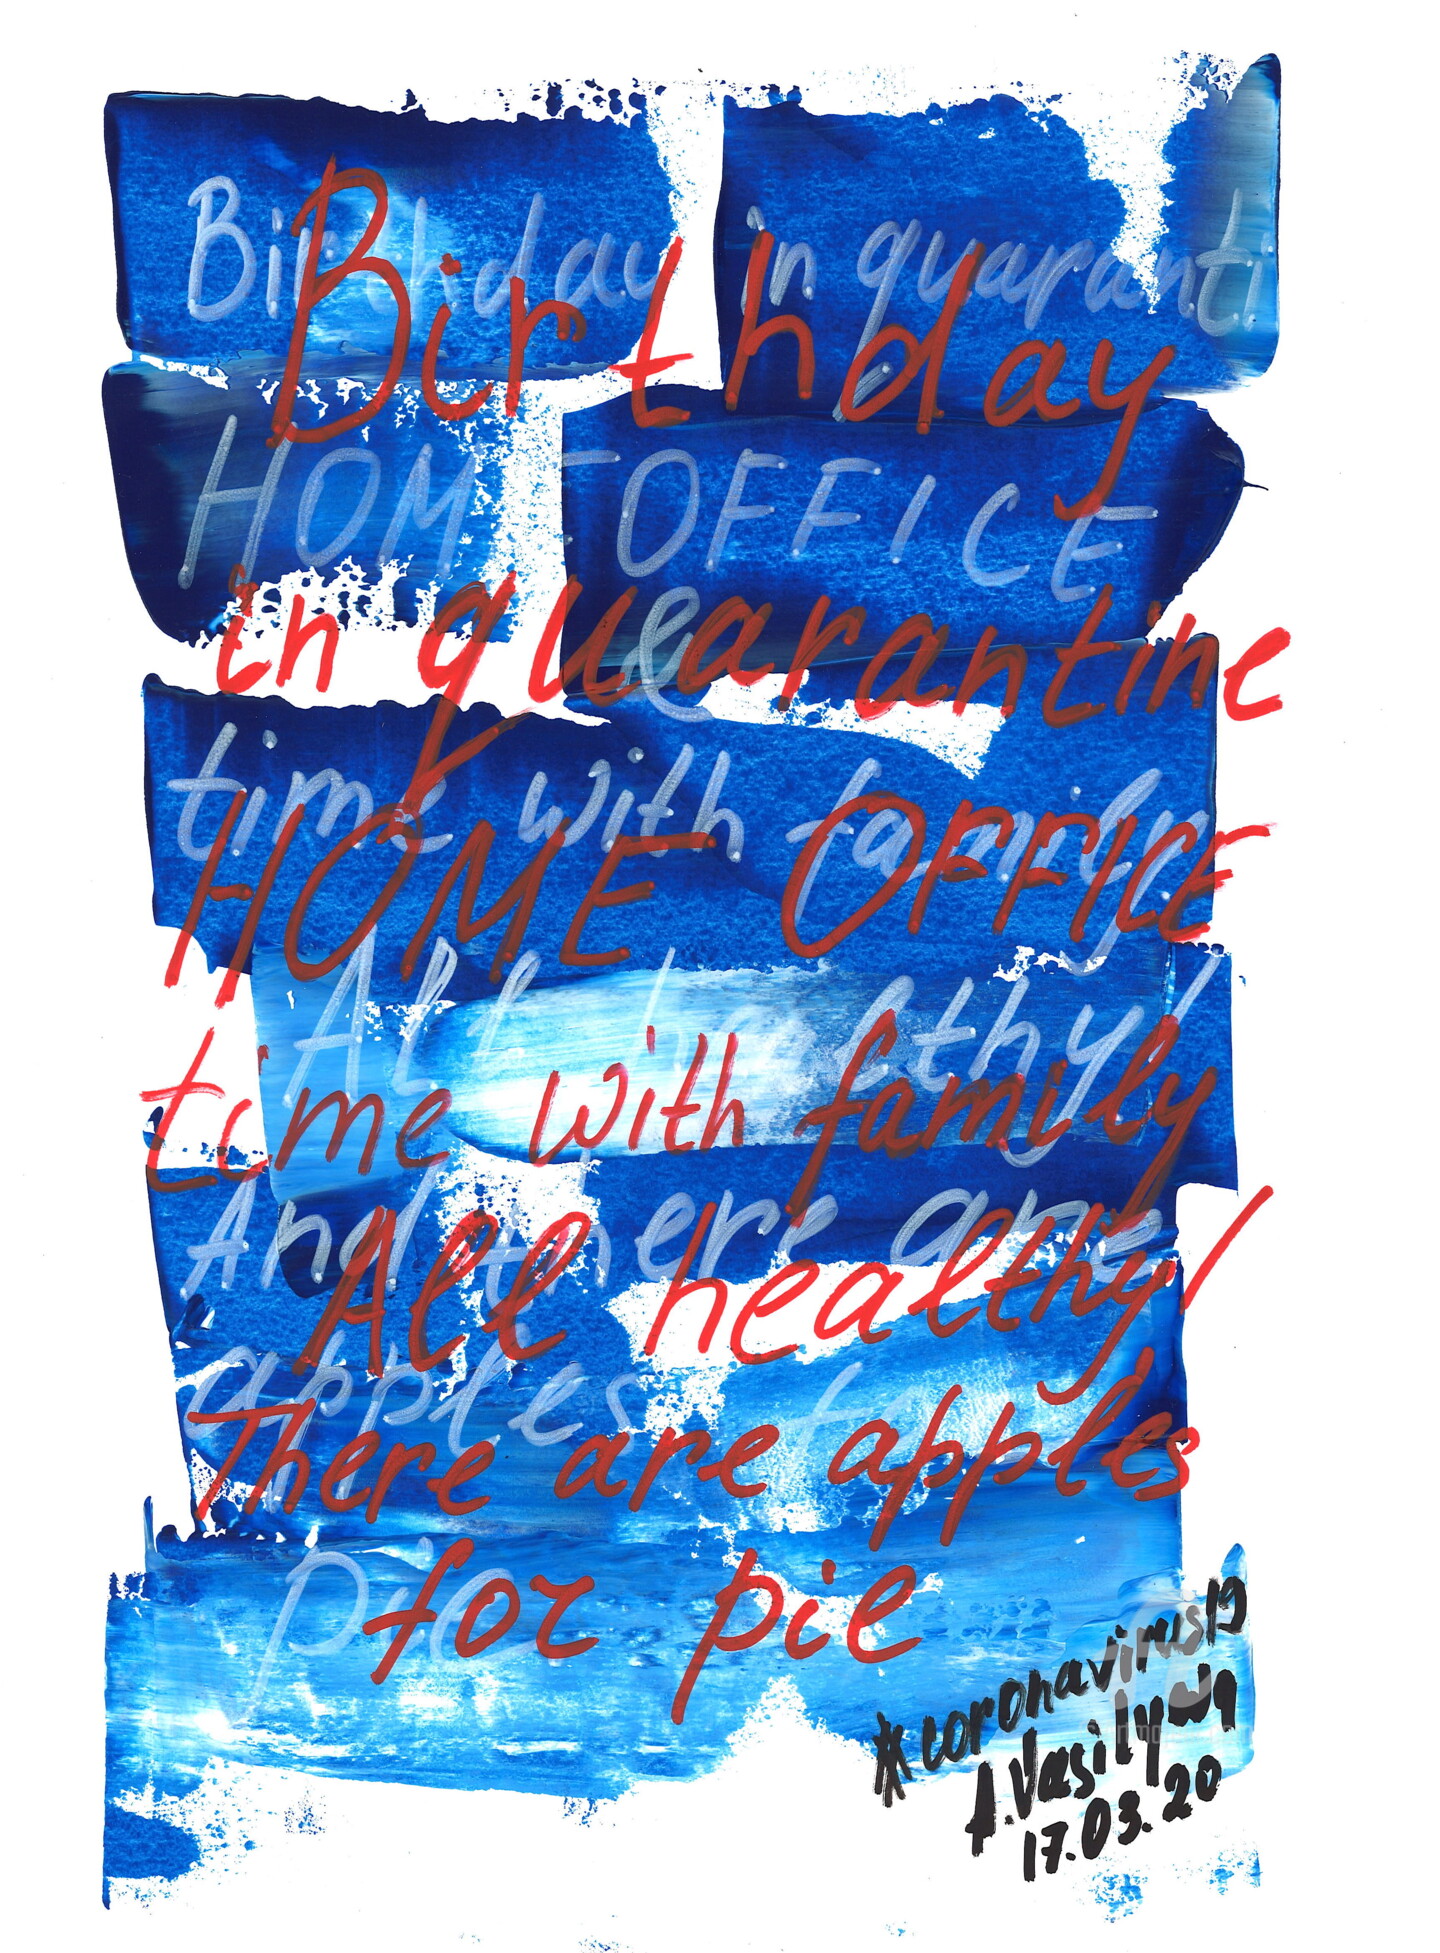 Birthday in quaranti
Birthday
HOM OFFICE
in quarantine
&
time with family
HOME OFFICE
All healthy!
time with family
And there are
All healthy!
apples
There are apples
pie
for pie
#coronavirus19
A.Vasilyeva
17.03.20